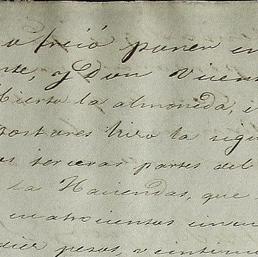 ofreció poner en
nte, y Don Vicente
bierta la almoneda, i
postores hizo la sigui
os terceras partes del
la Haciendas, que
cuatrocientos cincu
diez pesos, veintiun